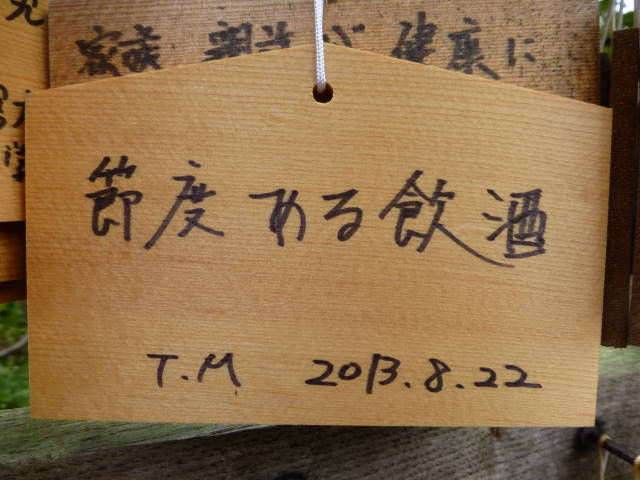 家族 親族が 健康に
節度ある飲酒
T.M 2013.8.22